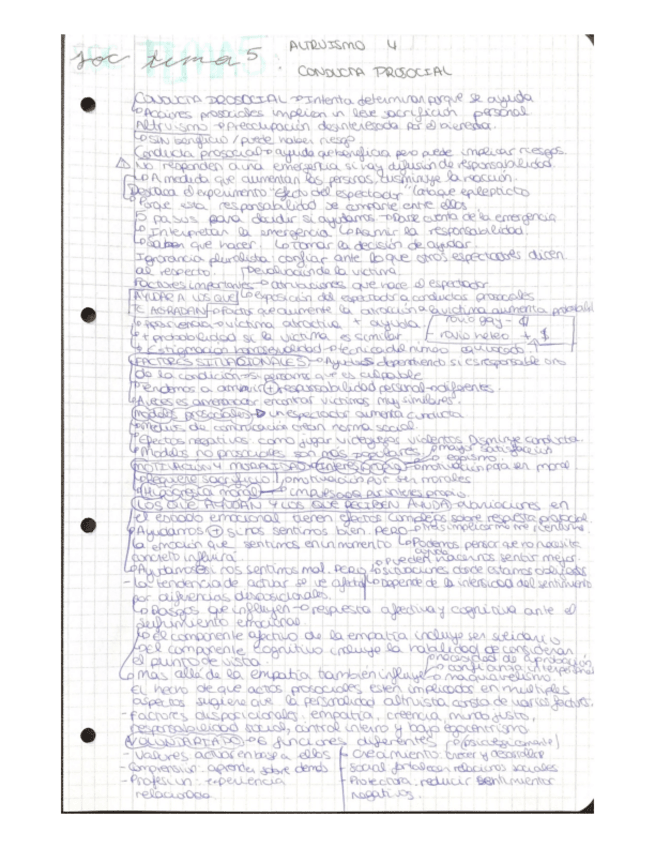 soc tema 5
ALTRUISMO Y
CONDUCTA PROSOCIAL
CONDUCTA PROSOCIAL → Intenta determinar porque se ayuda
↳ Acciones prosociales implican un leve sacrificio personal
Altruismo → Preocupación desinteresada por el bienestar.
↳ SIN beneficio / puede haber riesgo
Conducta prosocial → ayuda que beneficia pero puede implicar riesgos
⚠ No responden a una emergencia si hay difusión de responsabilidad.
↳ A medida que aumentan las personas, disminuye la reacción.
Destaca el experimento "Efecto del espectador" (ataque epiléptico
Porque esta responsabilidad se comparte entre ellos
5 pasos para decidir si ayudamos → Darse cuenta de la emergencia
↳ Interpretar la emergencia ↳ Asumir la responsabilidad
↳ Saber que hacer. ↳ Tomar la decisión de ayudar.
Ignorancia pluralista: confiar ante lo que otros espectadores dicen
al respecto. de la víctima.
Factores importantes → atribuciones que hace el espectador
AYUDAR A LOS QUE ↳ exposición del espectador a conductas prosociales.
TE AGRADAN → Factor que aumente la atracción → a víctima aumenta
↳ Apariencia → víctima atractiva + ayuda
↳ + probabilidad si la víctima es similar
↳ Estigmación homosexualidad → técnica del número equivocado
FACTORES SITUACIONALES → Ayudas dependiendo si es responsable o no
de la condición → si asume que es culpable
Tendemos a atribuir + responsabilidad personal
↳ A veces es amenazador encontrar víctimas muy similares.
modelos prosociales → un espectador aumenta conducta
↳ medios de comunicación crean norma social.
↳ Efectos negativos como jugar videojuegos violentos disminuye conducta.
↳ Modelos no prosociales son más populares
MOTIVACIÓN Y MORALIDAD → interés propio → motivación para ser moral
Requiere sacrificio motivación por ser morales
Hipocresía moral → propio
LOS QUE AYUDAN Y LOS QUE RECIBEN AYUDA → Variaciones en
el estado emocional tienen efectos complejos sobre respuesta prosocial.
↳ Ayudamos + si nos sentimos bien. Pero
la emoción que sentimos en un momento ↳ Podemos pensar que no necesita
concreto influirá ayuda
↳ Ayudamos si nos sentimos mal. Pero ↳ situaciones donde
- la tendencia de actuar se ve afectada ↳ Depende de la intensidad del sentimiento
por diferencias disposicionales.
↳ Rasgos que influyen → respuesta afectiva y cognitiva ante el
sufrimiento emocional.
↳ el componente afectivo de la empatía incluye ser solidario
↳ el componente cognitivo incluye la habilidad de considerar
el punto de vista. necesidad de aprobación
↳ Mas allá de la empatía también influye confianza interpersonal
maquiavelismo
El hecho de que actos prosociales estén implicados en múltiples
aspectos sugiere que la personalidad altruista consta de varios factores.
- factores disposicionales: empatía, creencia, mundo justo,
responsabilidad social, control interno y bajo egocentrismo.
VOLUNTARIADO → 6 funciones diferentes
- Valores: actuar en base a ellos - crecimiento: crecer y desarrollar
- Comprensivo: aprender sobre demás - social: fortalecer relaciones sociales
- Profesión: experiencia - Protectora: reducir sentimientos
relacionada. negativos.